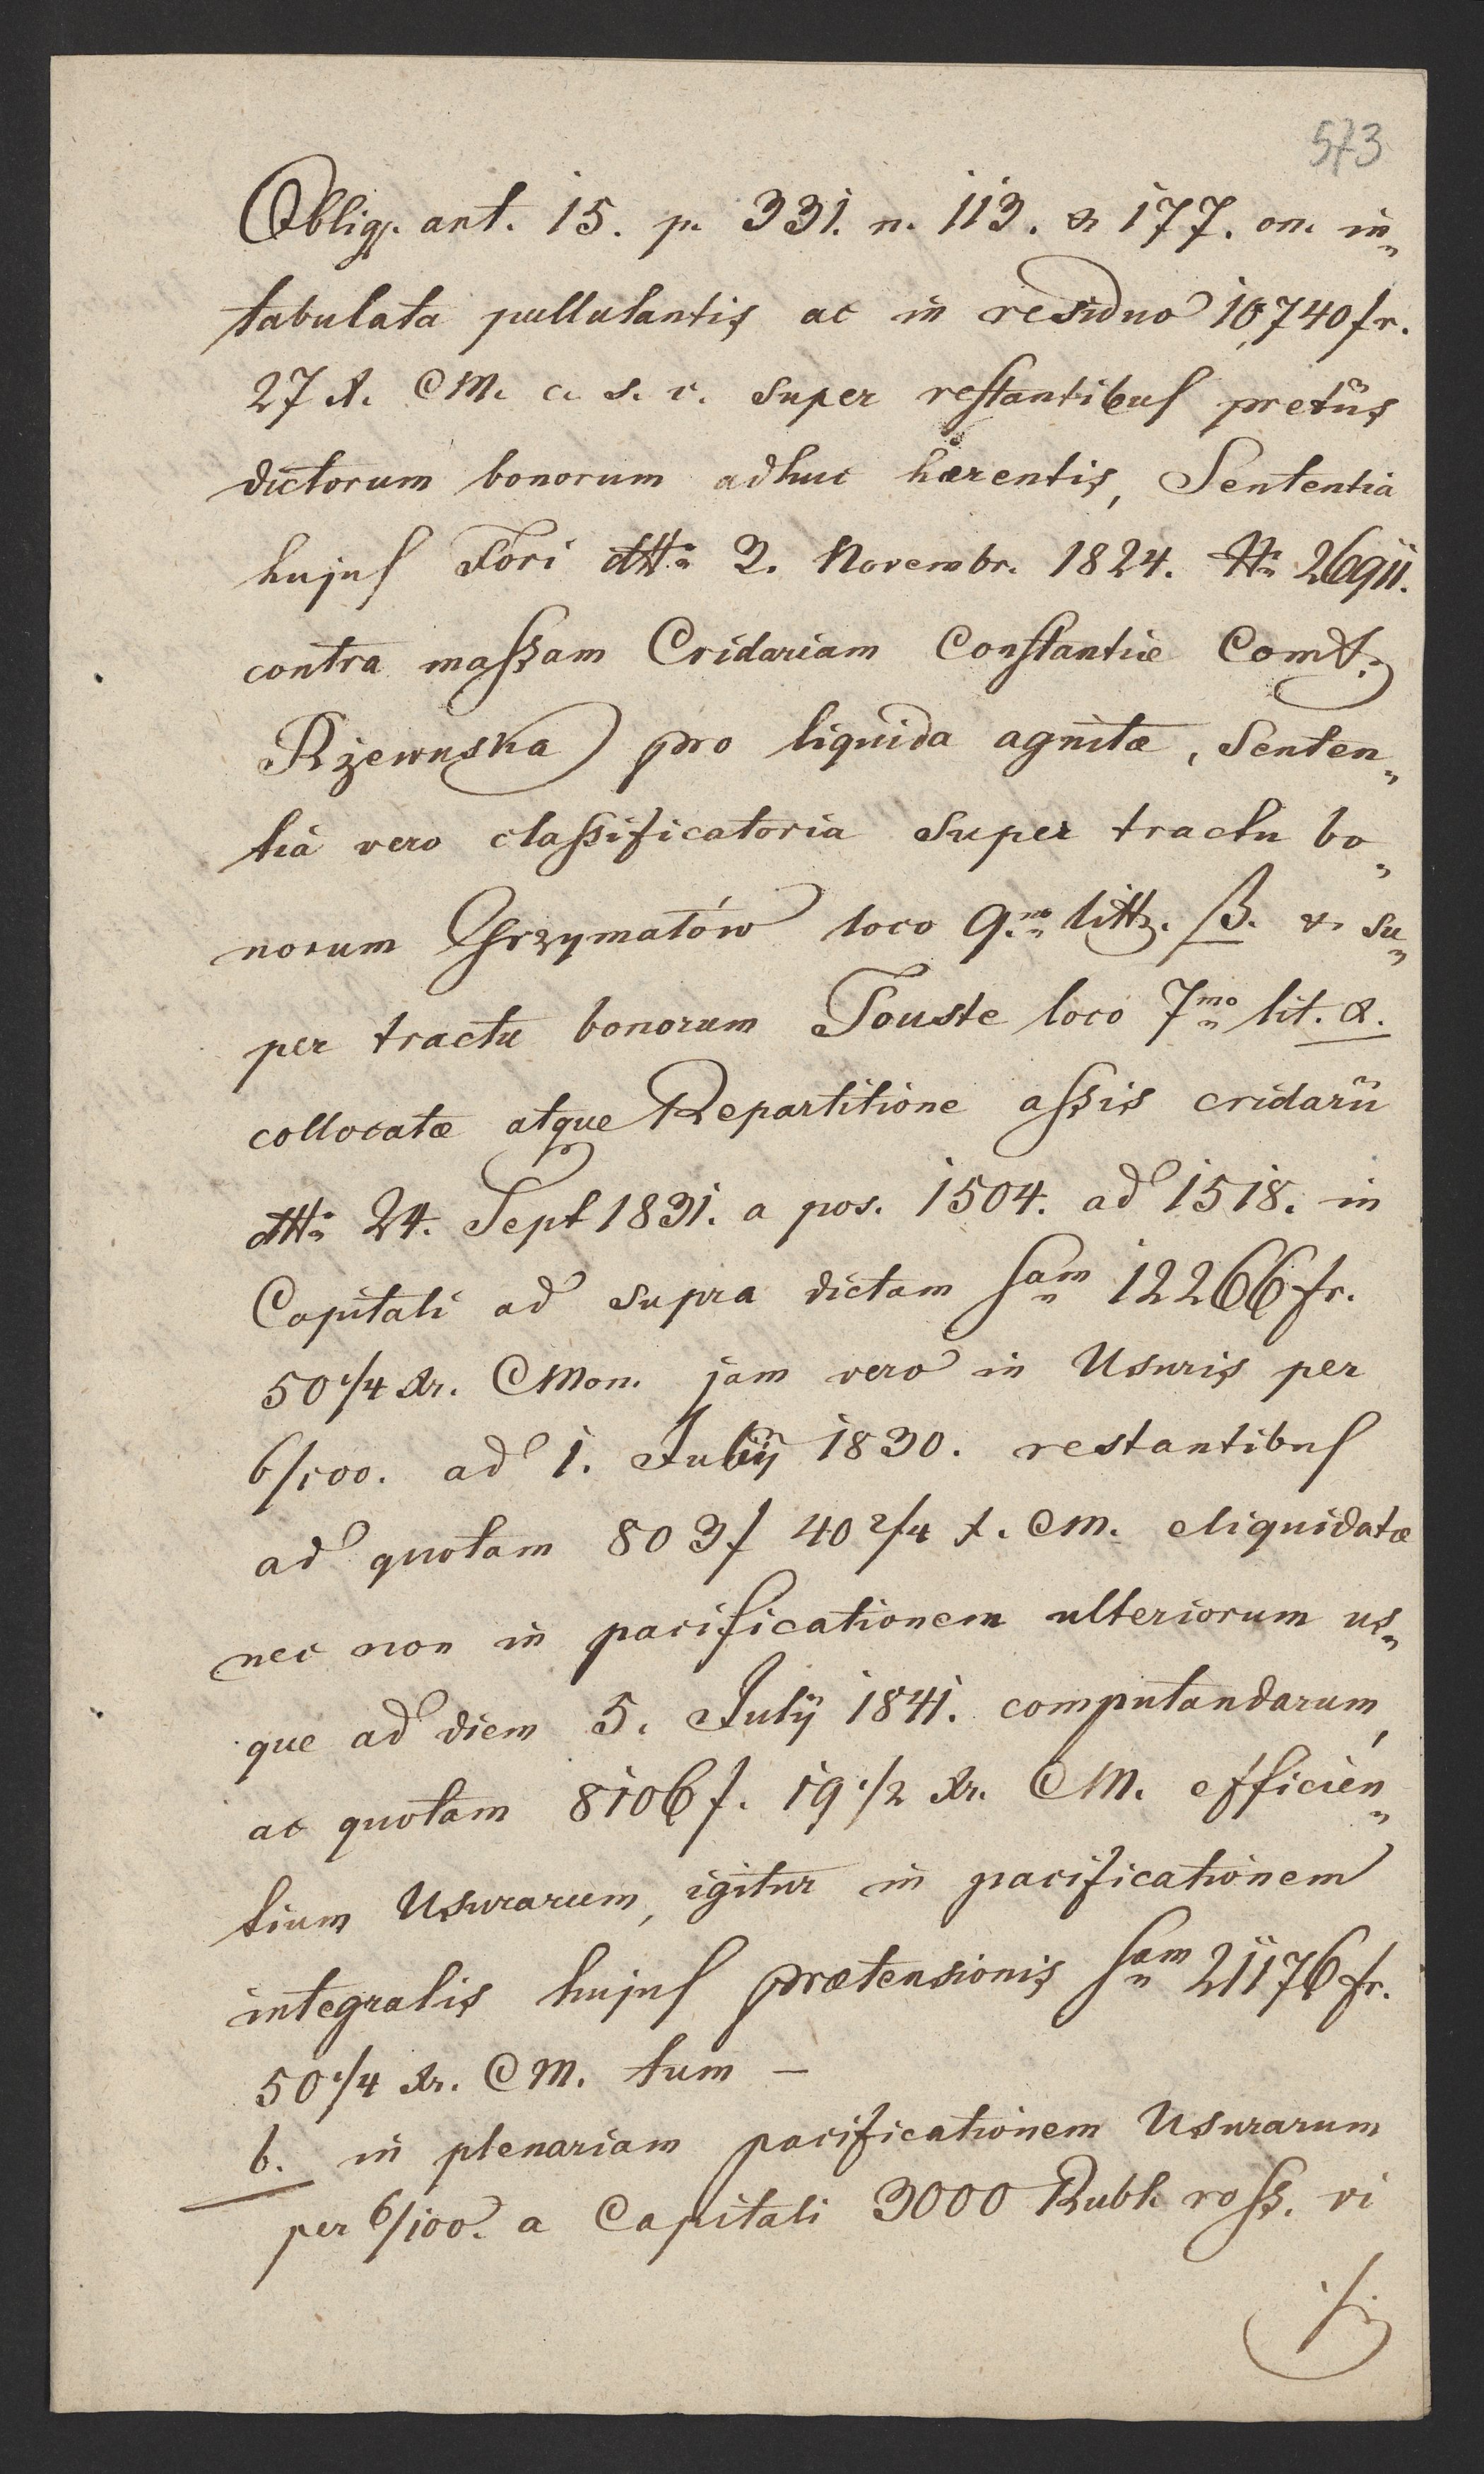 573
Oblig. ant. 15. p. 331. n. 113. & 177. on. in„
tabulata pullulantis ac in residuo 10,740 fr.
27 x. CM. c. s. c. super restantibus pretiis
dictorum bonorum adhuc hærentis, Sententia
hujus Fori dtto 2. Novembr. 1824. N. 26911.
contra massam Cridariam Constantiæ Comt.
Rzewuska pro liquida agnitæ, Senten„
tia vero classificatoria super tractu bo„
norum Grzymałów loco 9.no litt. β. & su„
per tractu bonorum Touste loco 7mo lit. α.
collocatæ atque Repartitione assis cridarii
dtto 24. Sept 1831. a pos. 1504. ad 1518. in
Capitali ad supra dictam Sam 12266 fr.
50 1/4 Xr. CMon. jam vero in Usuris per
6/100. ad 1. July 1830. restantibus
ad quotam 803 f 40 2/4 x. CM. eliquidatæ
nec non in pacificationem ulteriorum us„
que ad diem 5. July 1841. computandarum,
ac quotam 8106 f. 19 1/2 Xr. CM. efficien„
tium Usurarum, igitur in pacificationem
integralis hujus prætensionis Sam 21176 fr.
50 1/4 Xr. CM. tum —
b. in plenariam pacificationem Usurarum
per 6/100. a Capitali 3000 Rubl. ross. vi
./.